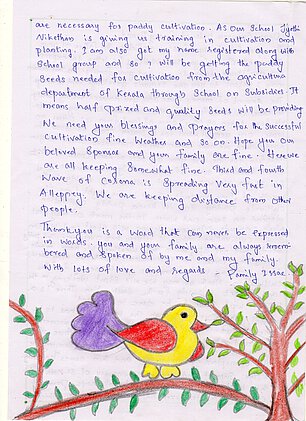 are necessary for paddy cultivation. As Our School Jyothi
Nikethan is giving us training in cultivation and
planting. I am also got my name registered along with
School group and so I will be getting the paddy
Seeds needed for cultivation from the agricultural
department of Kerala through School on Subsidies. It
means half prized and quality Seeds will be providing
We need your blessings and prayers for the successful
Cultivation fine weather and so on. Hope you Our
beloved Sponsor and your family are fine. Here we
are all keeping Somewhat fine. Third and fourth
Wave of Corona is Spreading Very fast in
Alleppey. We are keeping distance from other
people.
Thankyou is a word that Can never be expressed
in words. you and your family are always remem-
bered and spoken of by me and my family.
With lots of love and regards - Family